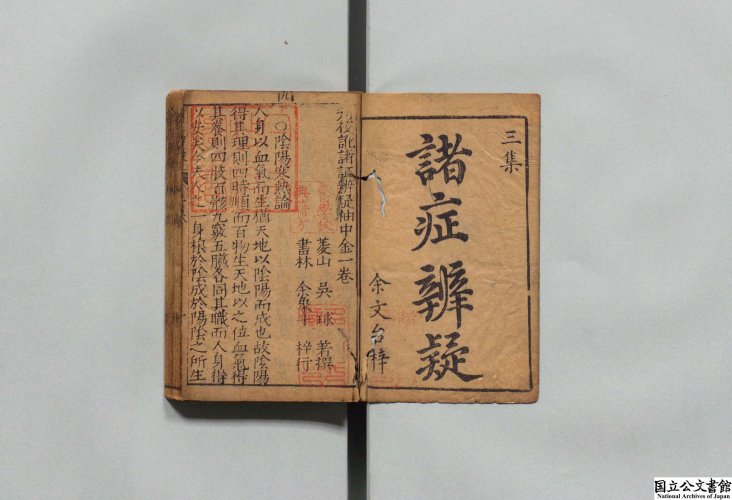 三集
諸症辨疑
余文台梓
諸証辨疑袖中金一卷
菱山 吳 球 著撰
書林 余象斗 梓行
○陰陽寒熱論
人身以血氣而生猶天地以陰陽而成也故陰陽
得其理則四時順而百物生天地以之位血氣得
其養則四肢百骸九竅五臟各司其職而人身得
以安矣今夫人之一身根於陰成於陽陰之所生
国立公文書館
National Archives of Japan